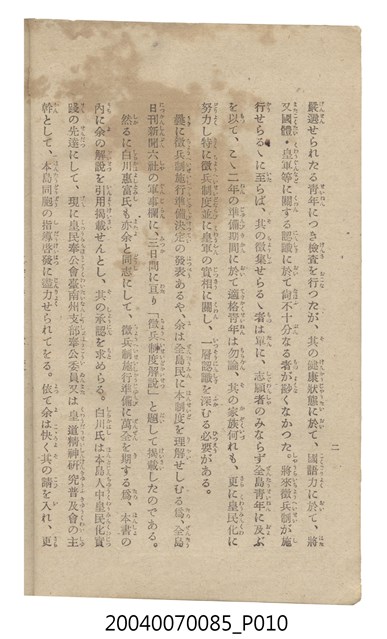 二
嚴選せられたる青年につき檢査を行つたが、其の健康狀態に於て、國語力に於て、將
又國體・皇軍等に關する認識に於て尙不十分なる者が尠くなかつた。將來徵兵制が施
行せらるゝに至らば、其の徵集せらるゝ者は單に、志願者のみならず全島青年に及ぶ
を以て、こゝ二年の準備期間に於て適格青年は勿論、其の家族何れも、更に皇民化に
努力し特に徵兵制度並に皇軍の實相に關し、一層認識を深むる必要がある。
義に徵兵制施行準備決定の發表あるや、余は全島民に本制度を理解せしむる爲、全島
日刊新聞六社の軍事欄に、三日間に亘り「徵兵制度解說」と題して揭載したのである。
然るに白川惠富氏も亦余と同志にして、徵兵制施行準備に萬全を期する爲、本書の
內に余の解說を引用揭載せんとし、其の承認を求めらる。白川氏は本島人中皇民化實
踐の先達にして、現に皇民奉公會臺南州支部奉公委員又は皇道精神硏究普及會の主
幹として、本島同胞の指導啓發に盡力せられてをる。依て余は快く其の請を入れ、更
20040070085_P010